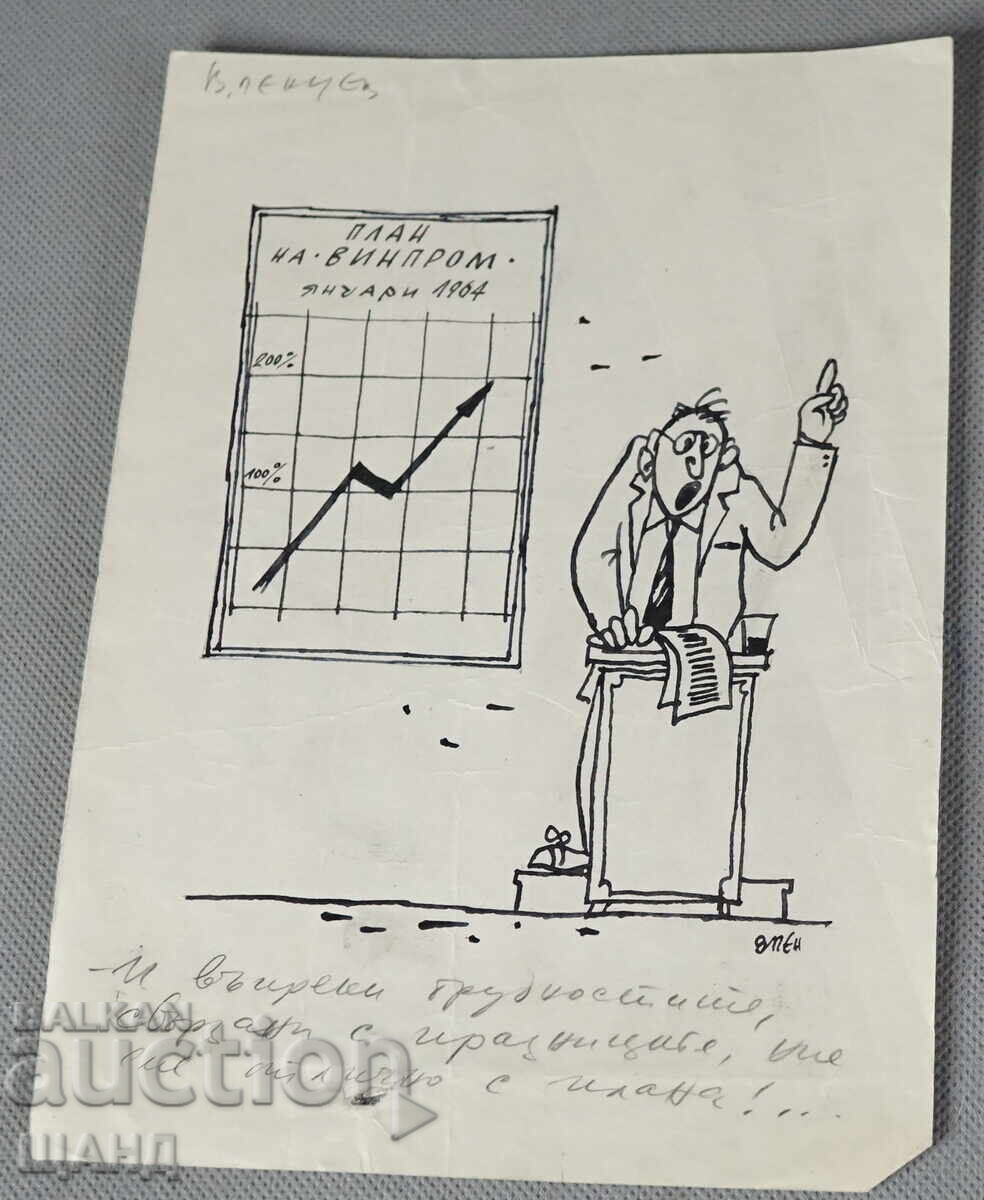 В. ПЕНЧЕВ
ПЛАН
НА · ВИНПРОМ ·
ЯНУАРИ 1964
200%
100%
ВПЕН
- И въпреки трудностите,
свързани с празниците, ние
сме отлично с плана!...
BALKAN
auction
ЩАНД